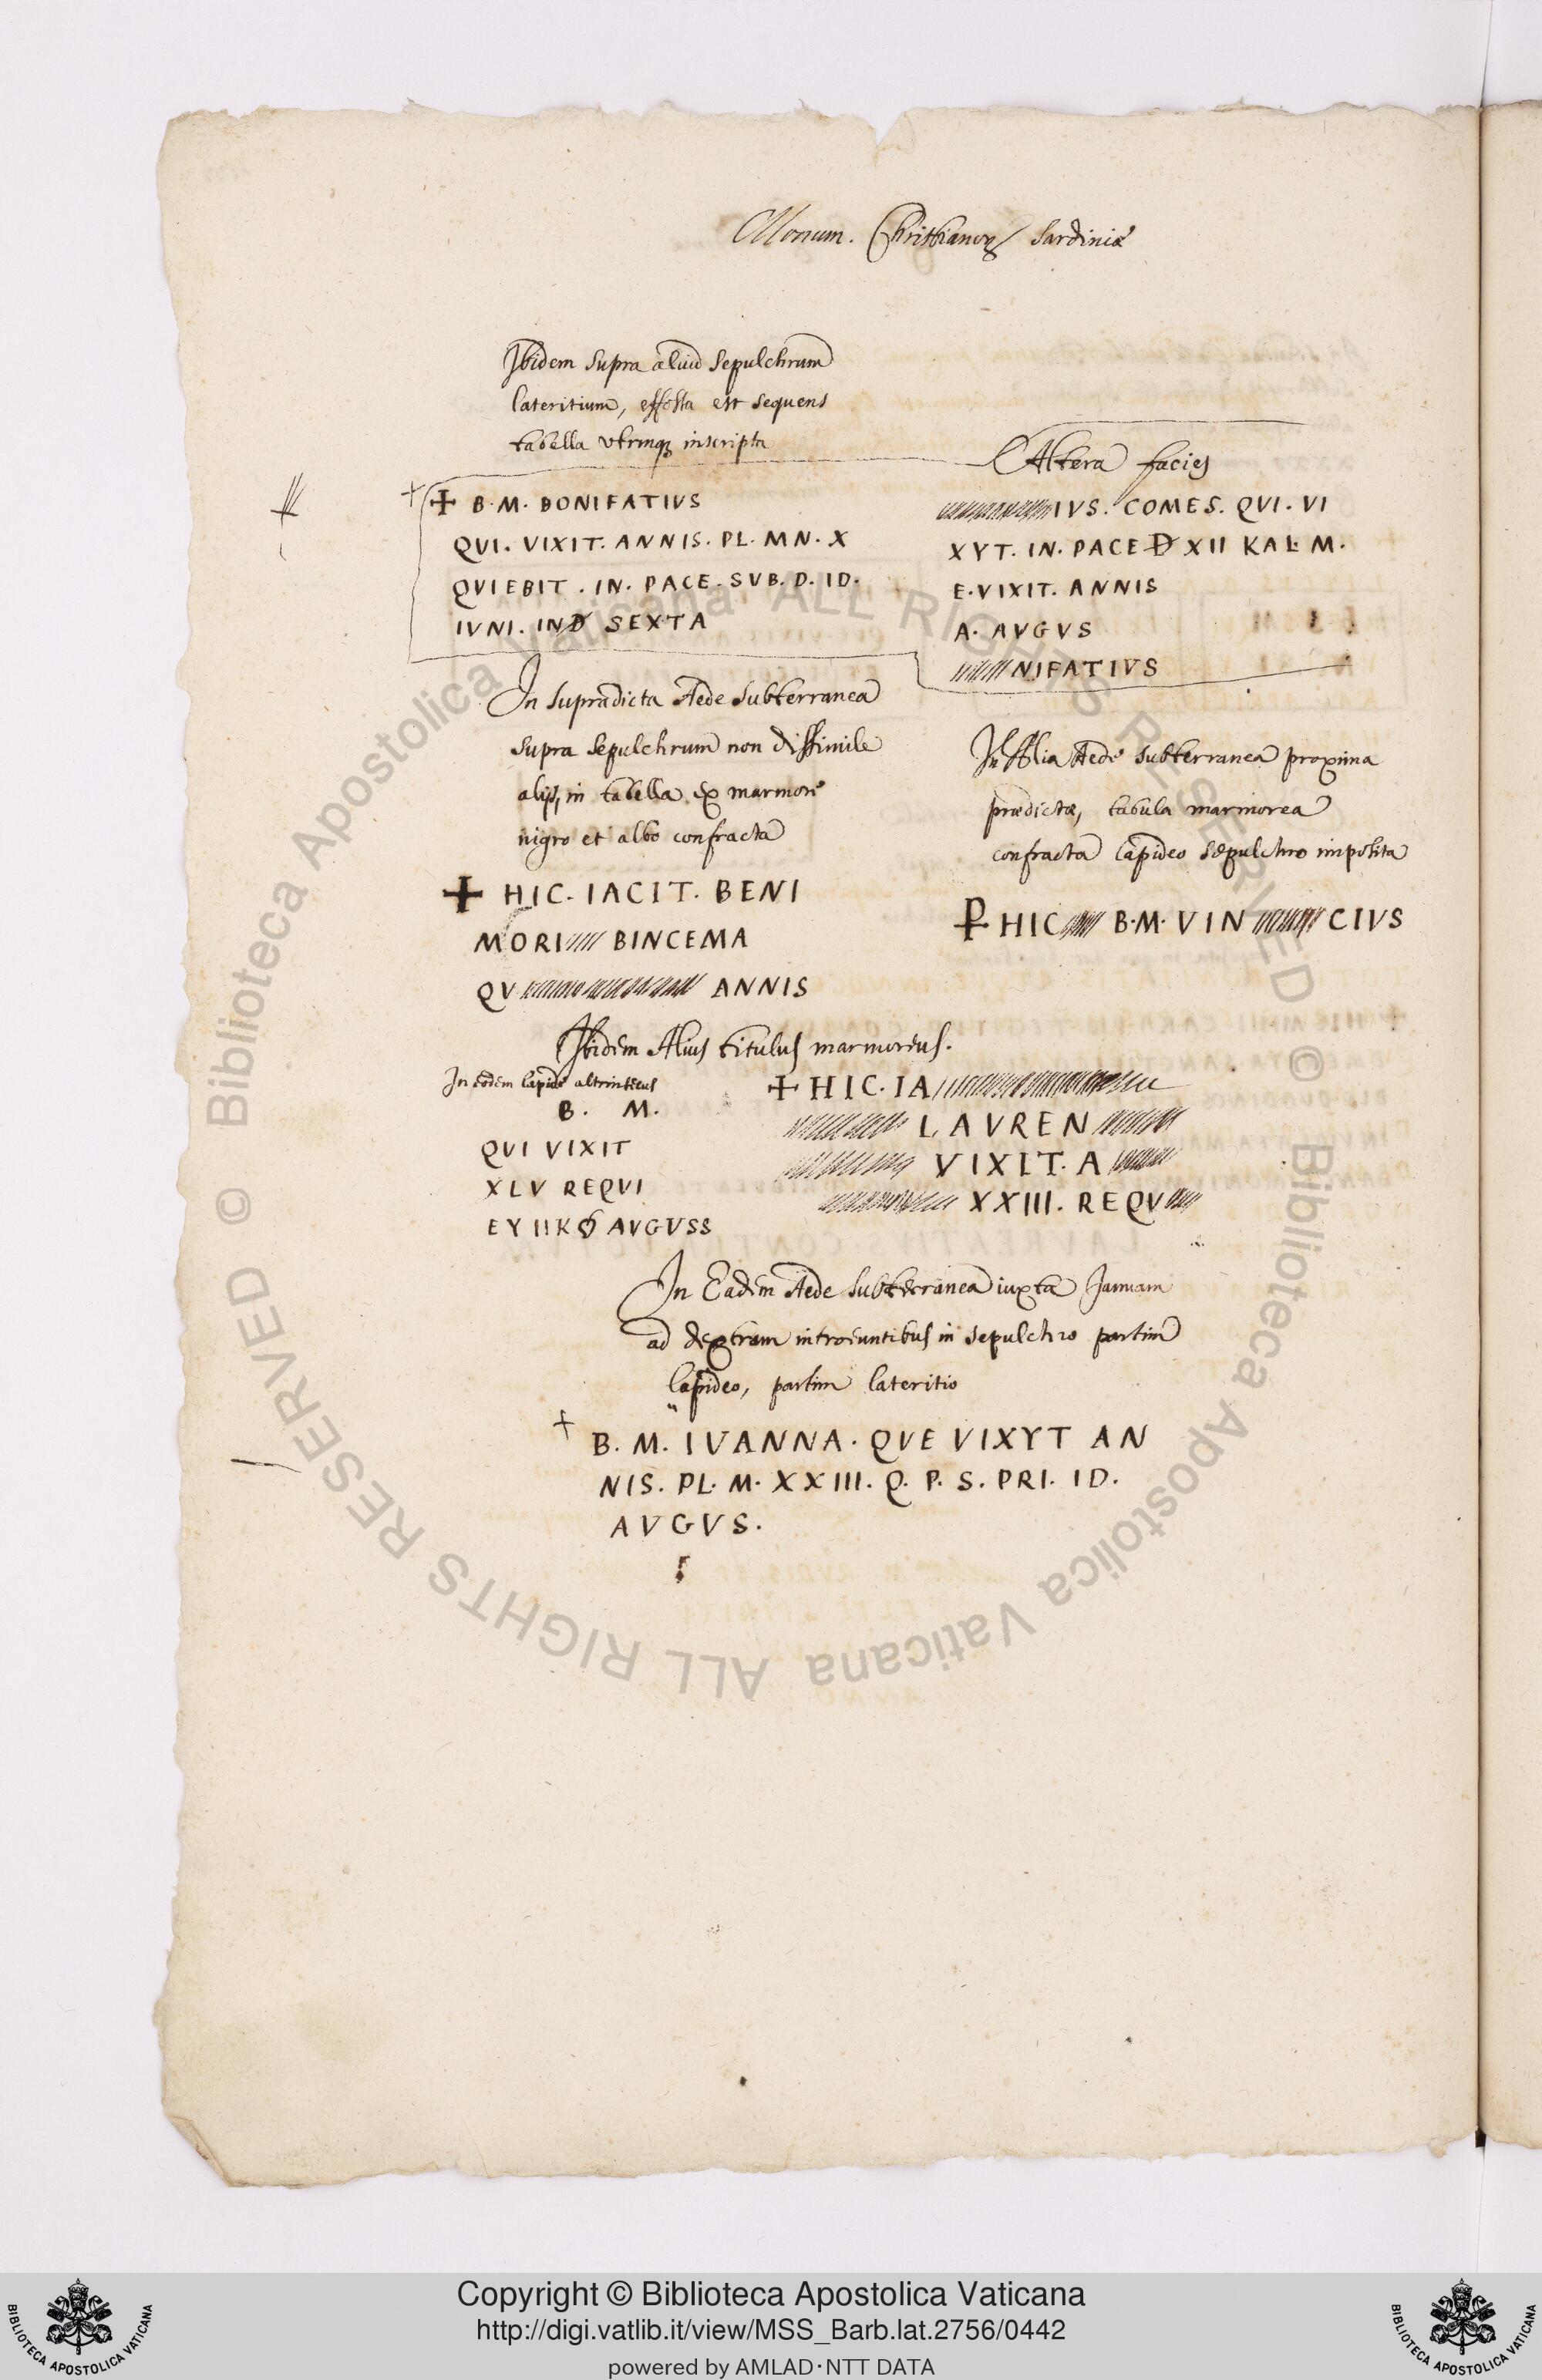 Monum. Christianorum Sardiniæ
Ibidem supra aliud sepulchrum
lateritium, effossa est sequens
tabella utrinq; inscripta
+ B. M. BONIFATIVS
QVI. VIXIT. ANNIS. PL. MN. X
QVIEBIT. IN. PACE. SVB. D. ID.
IVNI. IND SEXTA
Altera facies
IVS. COMES. QVI. VI
XYT. IN. PACE D XII KAL. M.
E. VIXIT. ANNIS
A. AVGVS
NIFATIVS
In supradicta Aede subterranea
supra sepulchrum non dissimile
alijs, in tabella ex marmore
nigro et albo confracta
+ HIC. IACIT. BENI
MORI BINCEMA
QV ANNIS
In Alia Aede subterranea proxima
prædictæ, tabula marmorea
confracta lapideo sepulchro imposita
HIC B. M. VIN CIVS
Ibidem Alius titulus marmoreus.
In eodem lapide altrinsecus
B. M.
QVI VIXIT
XLV REQVI
EY IIK AVGVSS
+ HIC. IA
LAVREN
VIXIT. A
XXIII. REQV
In Eadem Aede subterranea iuxta Januam
ad dextram introeuntibus in sepulchro partim
lapideo, partim lateritio
+ B. M. IVANNA. QVE VIXYT AN
NIS. PL. M. XXIII. Q. P. S. PRI. ID.
AVGVS.
© Biblioteca Apostolica Vaticana ALL RIGHTS RESERVED © Biblioteca Apostolica Vaticana ALL RIGHTS RESERVED
BIBLIOTECA APOSTOLICA VATICANA
Copyright © Biblioteca Apostolica Vaticana
http://digi.vatlib.it/view/MSS_Barb.lat.2756/0442
powered by AMLAD·NTT DATA
BIBLIOTECA APOSTOLICA VATICANA